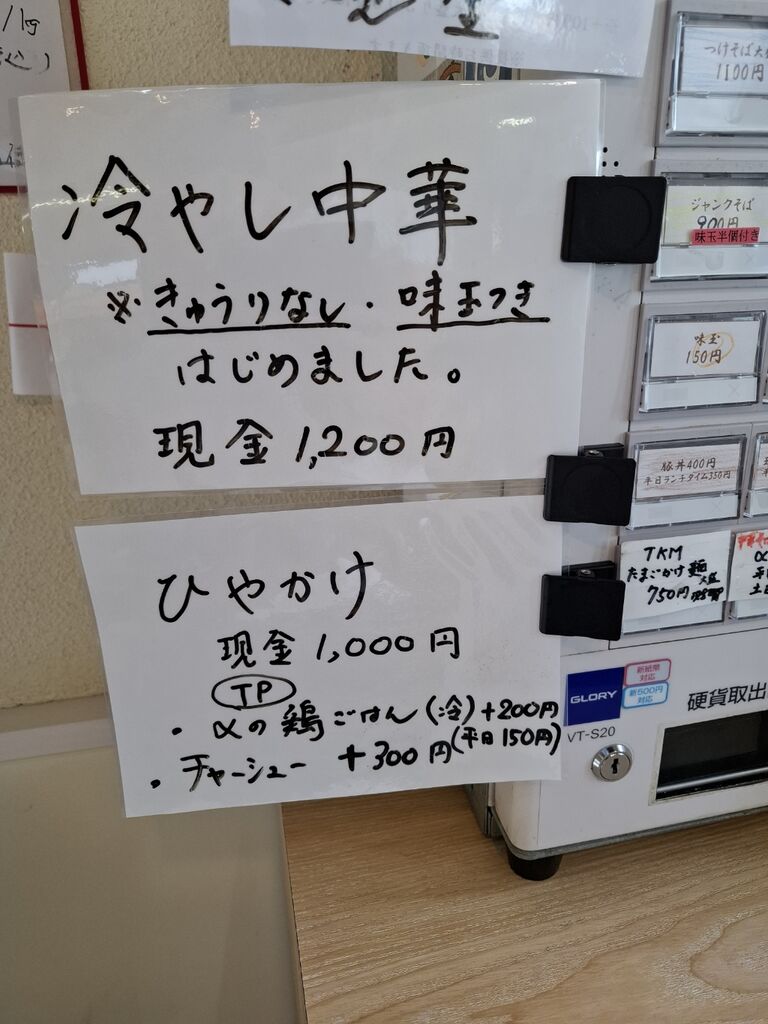 冷やし中華
※きゅうりなし・味玉つき
はじめました。
現金1,200円
ひやかけ
現金1,000円
TP
・αの鶏ごはん(冷)+200円
(平日150円)
・チャーシュー +300円
つけそば大
1100円
ジャンクそば
900円
味玉半個付き
味玉
150円
豚丼400円
平日ランチタイム350円
TKM
たまごかけ麺
750円
GLORY
新紙幣
対応
新500円
対応
VT-S20
硬貨取出